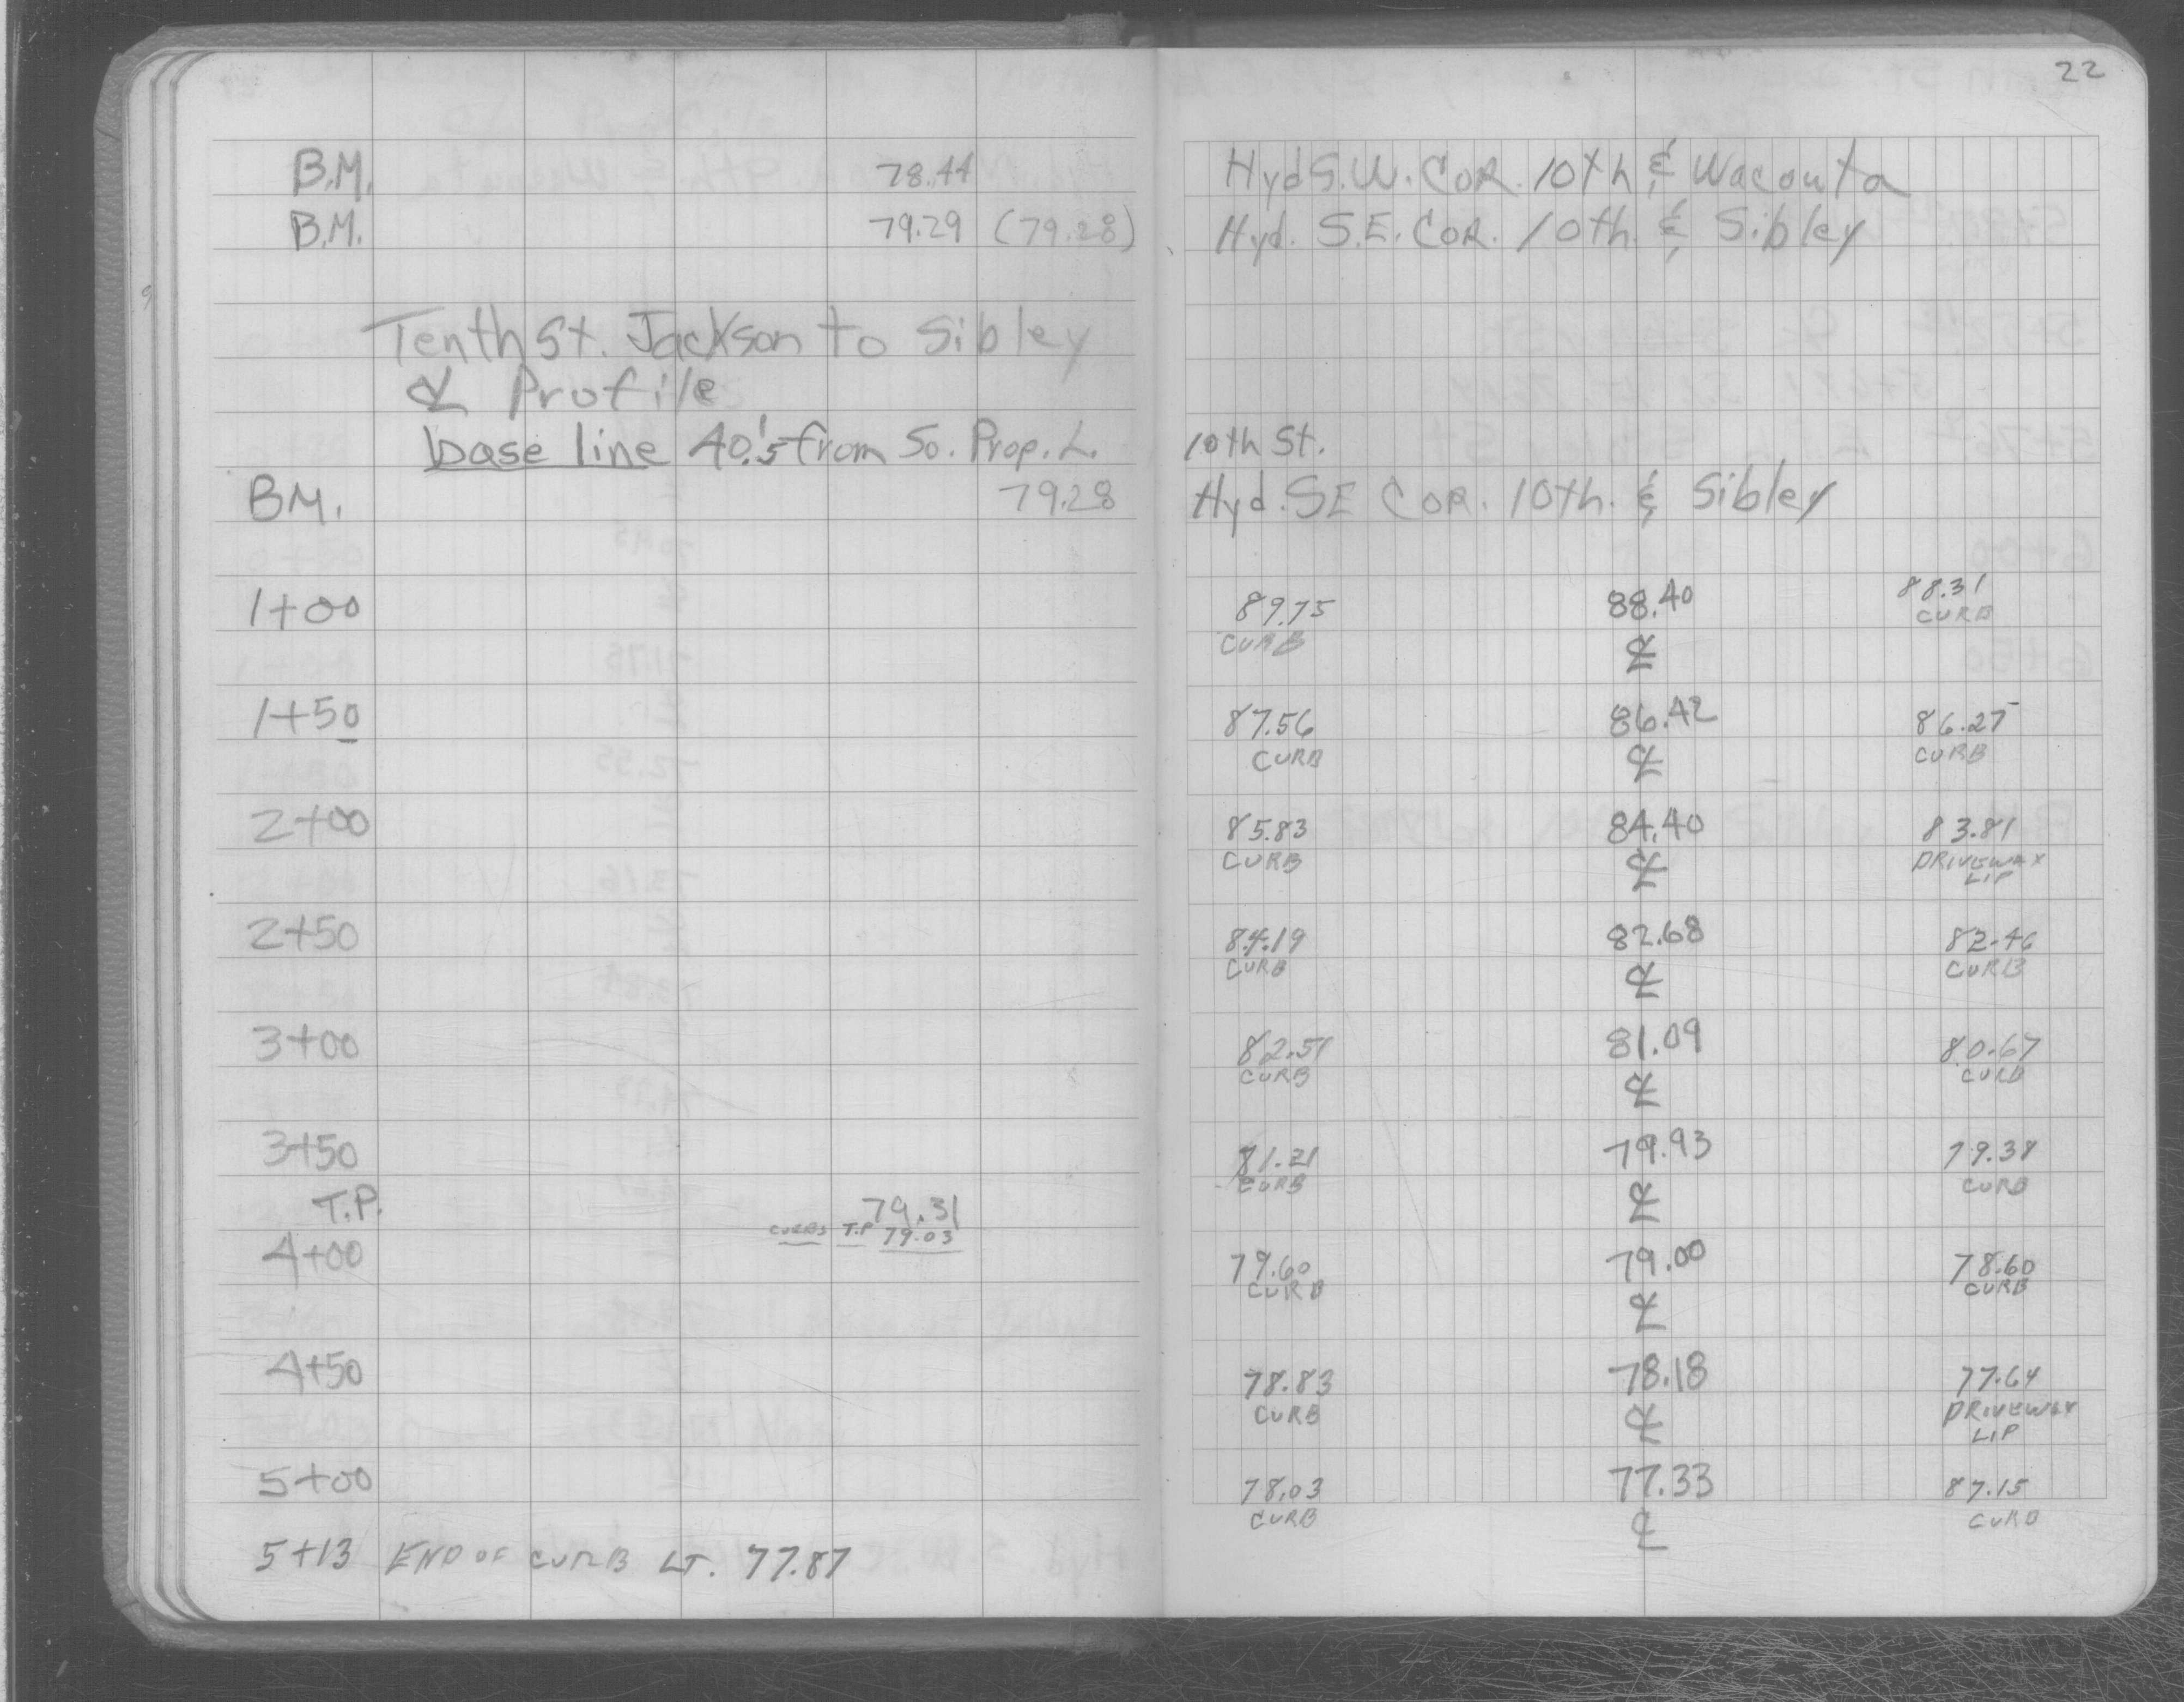 22
B.M. 78.44 Hyd S.W. COR. 10th & Wacouta
B.M. 79.29 (79.28) Hyd. S.E. COR. 10th & Sibley
Tenth St. Jackson to Sibley
℄ Profile
base line 40.'5 from So. Prop. L. 10th St.
BM. 79.28 Hyd. SE COR. 10th. & Sibley
1+00 89.75 88.40 88.31
CURB ℄ CURB
1+50 87.56 86.42 86.27
CURB ℄ CURB
2+00 85.83 84.40 83.81
CURB ℄ DRIVEWAY
LIP
2+50 84.19 82.68 82.46
CURB ℄ CURB
3+00 82.51 81.09 80.67
CURB ℄ CURB
3+50 81.21 79.93 79.38
CURB ℄ CURB
T.P. 79.31
CURBS T.P 79.03
4+00 79.60 79.00 78.60
CURB ℄ CURB
4+50 78.83 78.18 77.64
CURB ℄ DRIVEWAY
LIP
5+00 78.03 77.33 87.15
CURB ℄ CURB
5+13 END OF CURB LT. 77.87